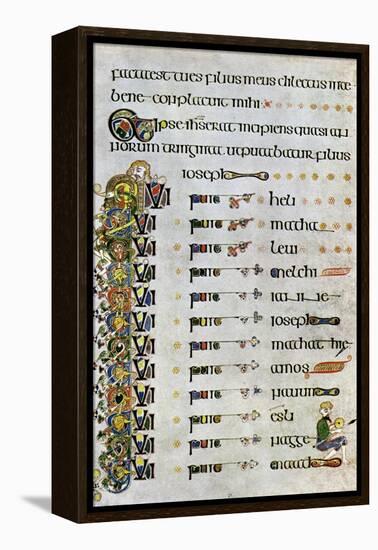 facta est tu es filius meus dilectus in te
bene conplacuit mihi
Et ipse ihs erat incipiens quasi an
norum triginta ut putabatur filius
ioseph
QUI fuit heli
QUI fuit matha
QUI fuit levi
QUI fuit melchi
QUI fuit iannae
QUI fuit ioseph
QUI fuit mathat hie
QUI fuit amos
QUI fuit naum
QUI fuit esli
QUI fuit nagge
QUI fuit maath